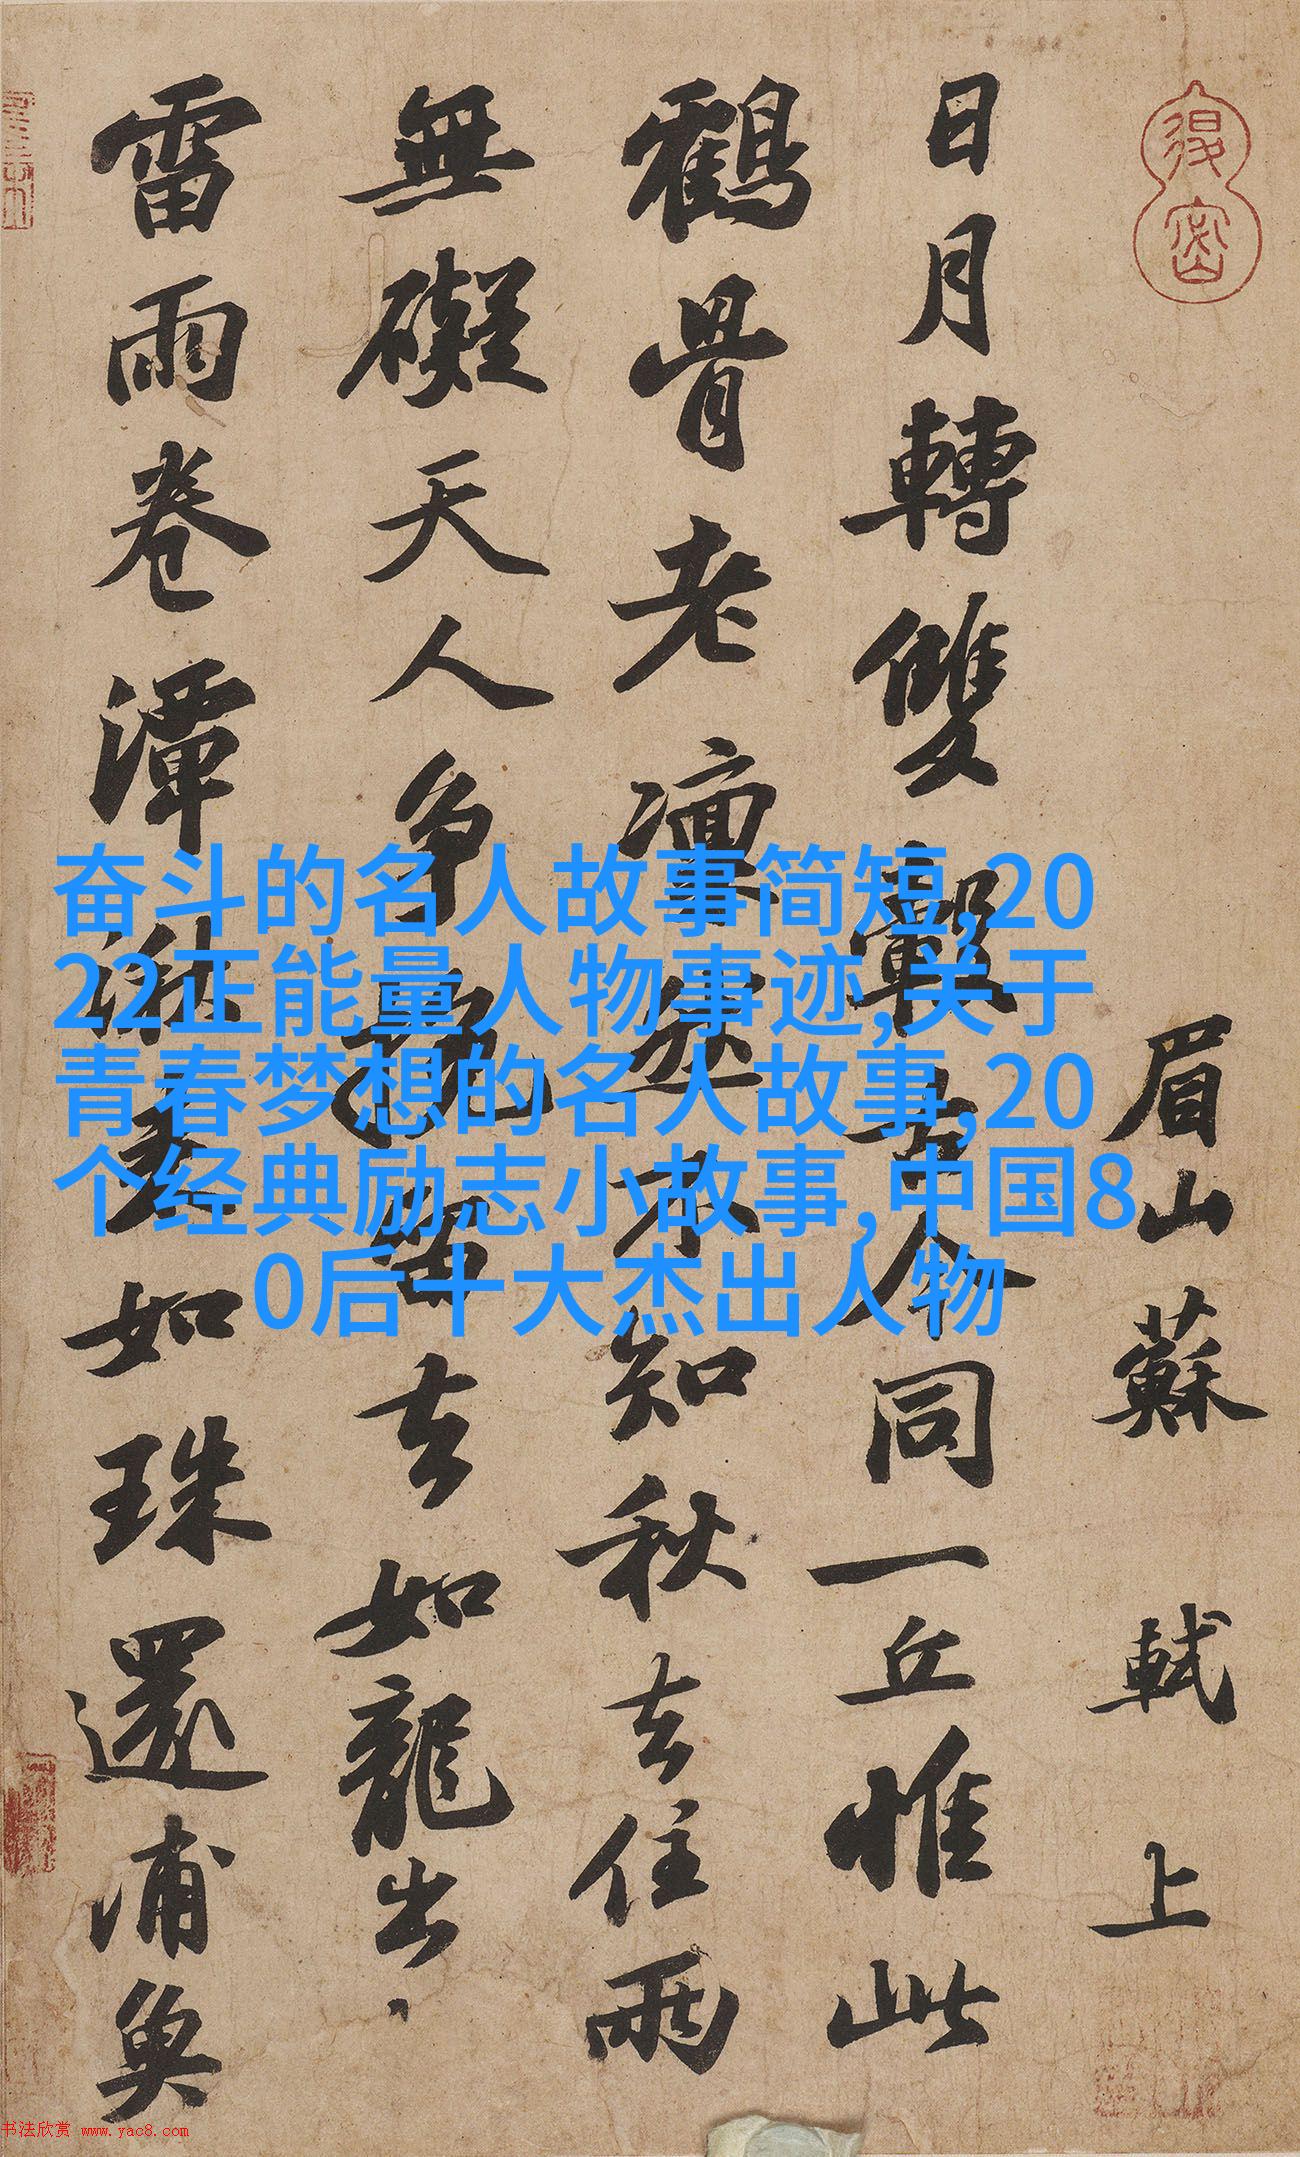 眉山蘇軾上
日月轉雙轂古今同一丘惟此
鶴骨老凜然不知秋去住兩
無礙天人爭挽留去如龍出
雷雨卷潭湫來如珠還浦魚
奋斗的名人故事简短,20
22正能量人物事迹,关于
青春梦想的名人故事,20
个经典励志小故事,中国8
0后十大杰出人物
书法欣赏 www.yac8.com